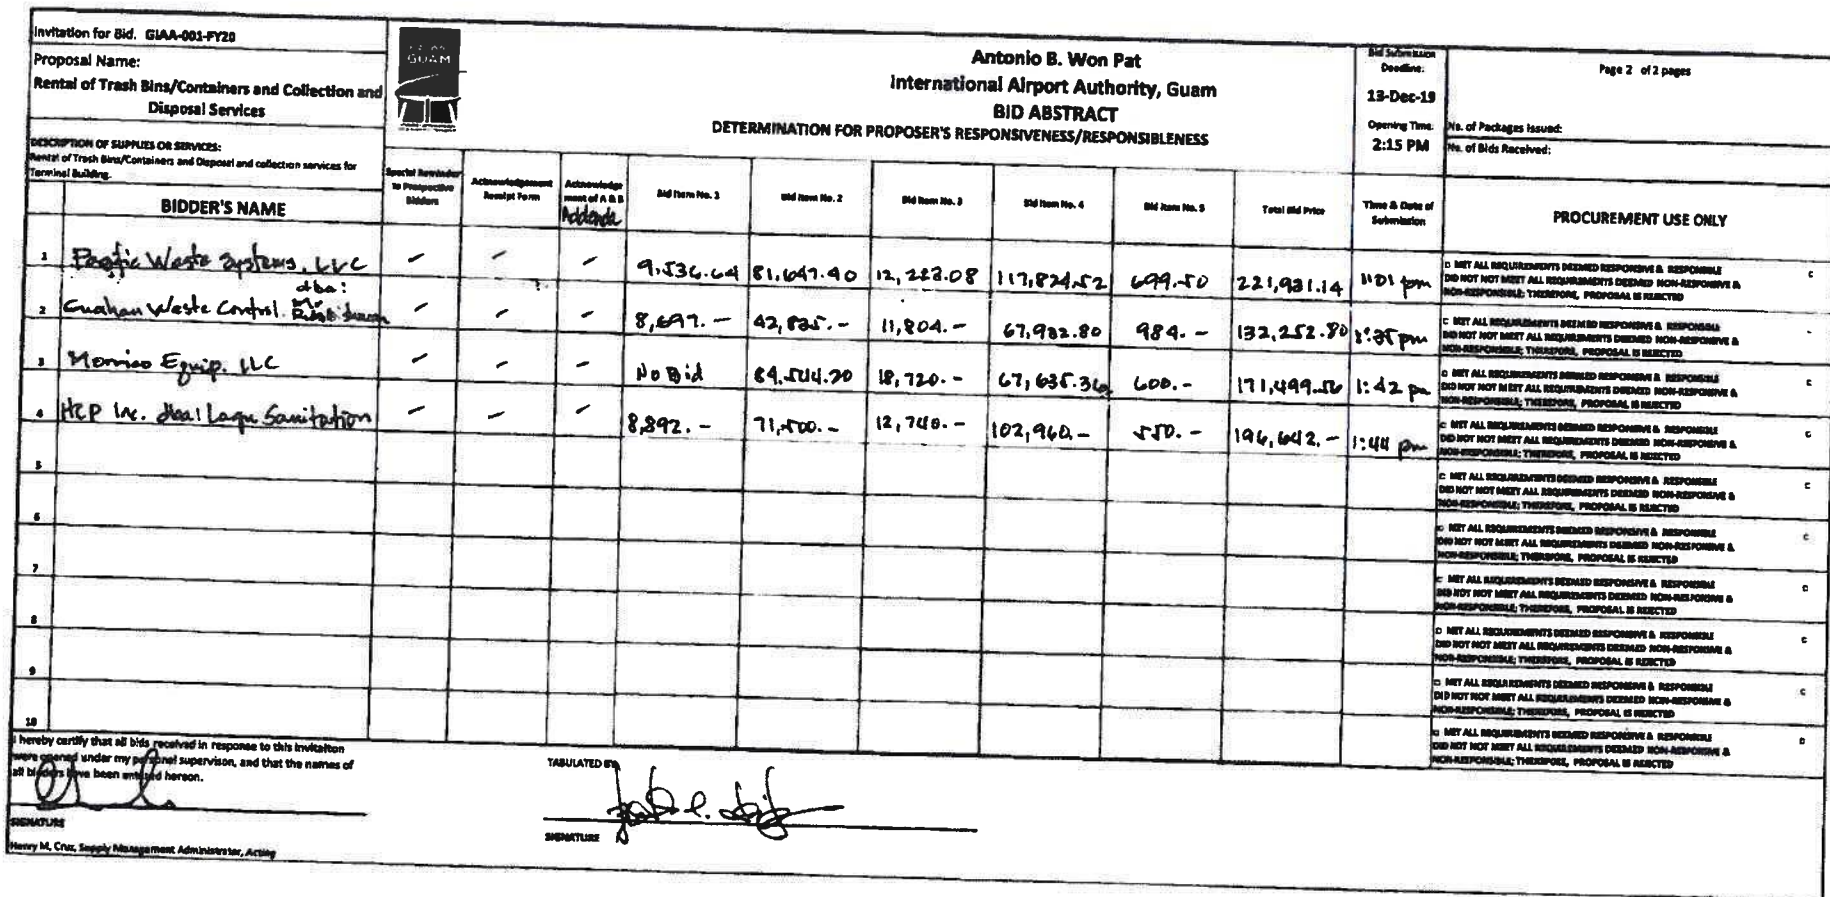 Invitation for Bid. GIAA-001-FY20
Proposal Name:
Rental of Trash Bins/Containers and Collection and
Disposal Services
DESCRIPTION OF SUPPLIES OR SERVICES:
Rental of Trash Bins/Containers and Disposal and collection services for
Terminal Building.
GUAM
Antonio B. Won Pat
International Airport Authority, Guam
BID ABSTRACT
DETERMINATION FOR PROPOSER'S RESPONSIVENESS/RESPONSIBLENESS
Bid Submission
Deadline:
13-Dec-19
Opening Time:
2:15 PM
Page 2 of 2 pages
No. of Packages Issued:
No. of Bids Received:
BIDDER'S NAME
Special Reminder
to Prospective
Bidders
Acknowledgement
Receipt Form
Acknowledge
ment of A & B
Addenda
Bid Item No. 1
Bid Item No. 2
Bid Item No. 3
Bid Item No. 4
Bid Item No. 5
Total Bid Price
Time & Date of
Submission
PROCUREMENT USE ONLY
1 Pacific Waste Systems, LLC 9,536.64 81,647.40 12,223.08 117,824.52 699.50 221,931.14 1:01 pm
MET ALL REQUIREMENTS DEEMED RESPONSIVE & RESPONSIBLE
DID NOT NOT MEET ALL REQUIREMENTS DEEMED NON-RESPONSIVE &
NON-RESPONSIBLE; THEREFORE, PROPOSAL IS REJECTED
dba:
2 Guahan Waste Control Mr. Rubbishman 8,697.- 42,835.- 11,804.- 67,932.80 984.- 132,252.80 1:35 pm
MET ALL REQUIREMENTS DEEMED RESPONSIVE & RESPONSIBLE
DID NOT NOT MEET ALL REQUIREMENTS DEEMED NON-RESPONSIVE &
NON-RESPONSIBLE; THEREFORE, PROPOSAL IS REJECTED
3 Morrico Equip. LLC No Bid 84,544.20 18,720.- 67,635.36 600.- 171,499.56 1:42 pm
MET ALL REQUIREMENTS DEEMED RESPONSIVE & RESPONSIBLE
DID NOT NOT MEET ALL REQUIREMENTS DEEMED NON-RESPONSIVE &
NON-RESPONSIBLE; THEREFORE, PROPOSAL IS REJECTED
4 HCP Inc. Lagu Sanitation 8,892.- 71,500.- 12,740.- 102,960.- 550.- 196,642.- 1:44 pm
MET ALL REQUIREMENTS DEEMED RESPONSIVE & RESPONSIBLE
DID NOT NOT MEET ALL REQUIREMENTS DEEMED NON-RESPONSIVE &
NON-RESPONSIBLE; THEREFORE, PROPOSAL IS REJECTED
5
MET ALL REQUIREMENTS DEEMED RESPONSIVE & RESPONSIBLE
DID NOT NOT MEET ALL REQUIREMENTS DEEMED NON-RESPONSIVE &
NON-RESPONSIBLE; THEREFORE, PROPOSAL IS REJECTED
6
MET ALL REQUIREMENTS DEEMED RESPONSIVE & RESPONSIBLE
DID NOT NOT MEET ALL REQUIREMENTS DEEMED NON-RESPONSIVE &
NON-RESPONSIBLE; THEREFORE, PROPOSAL IS REJECTED
7
MET ALL REQUIREMENTS DEEMED RESPONSIVE & RESPONSIBLE
DID NOT NOT MEET ALL REQUIREMENTS DEEMED NON-RESPONSIVE &
NON-RESPONSIBLE; THEREFORE, PROPOSAL IS REJECTED
8
MET ALL REQUIREMENTS DEEMED RESPONSIVE & RESPONSIBLE
DID NOT NOT MEET ALL REQUIREMENTS DEEMED NON-RESPONSIVE &
NON-RESPONSIBLE; THEREFORE, PROPOSAL IS REJECTED
9
MET ALL REQUIREMENTS DEEMED RESPONSIVE & RESPONSIBLE
DID NOT NOT MEET ALL REQUIREMENTS DEEMED NON-RESPONSIVE &
NON-RESPONSIBLE; THEREFORE, PROPOSAL IS REJECTED
10
MET ALL REQUIREMENTS DEEMED RESPONSIVE & RESPONSIBLE
DID NOT NOT MEET ALL REQUIREMENTS DEEMED NON-RESPONSIVE &
NON-RESPONSIBLE; THEREFORE, PROPOSAL IS REJECTED
I hereby certify that all bids received in response to this invitaiton
were opened under my personal supervision, and that the names of
all bidders have been entered hereon.
SIGNATURE
Henry M. Cruz, Supply Management Administrator, Acting
TABULATED BY
SIGNATURE